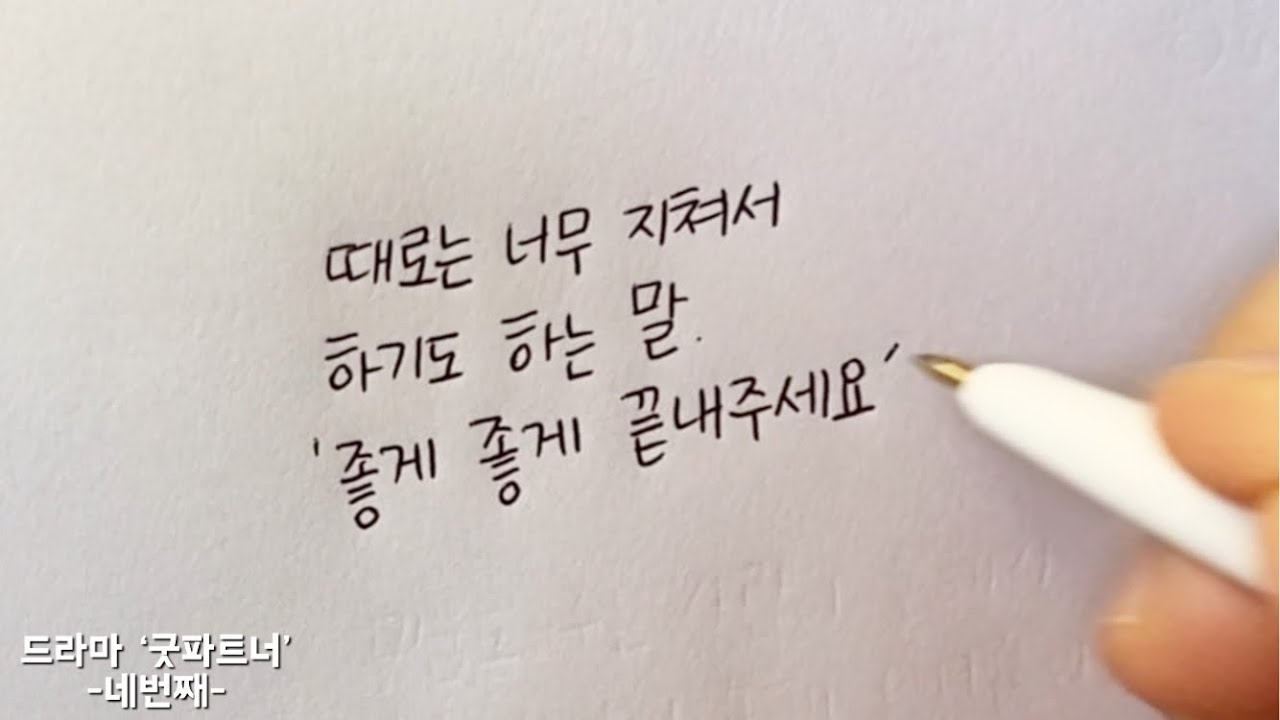 때로는 너무 지쳐서
하기도 하는 말.
'좋게 좋게 끝내주세요'
드라마 ‘굿파트너’
-네번째-